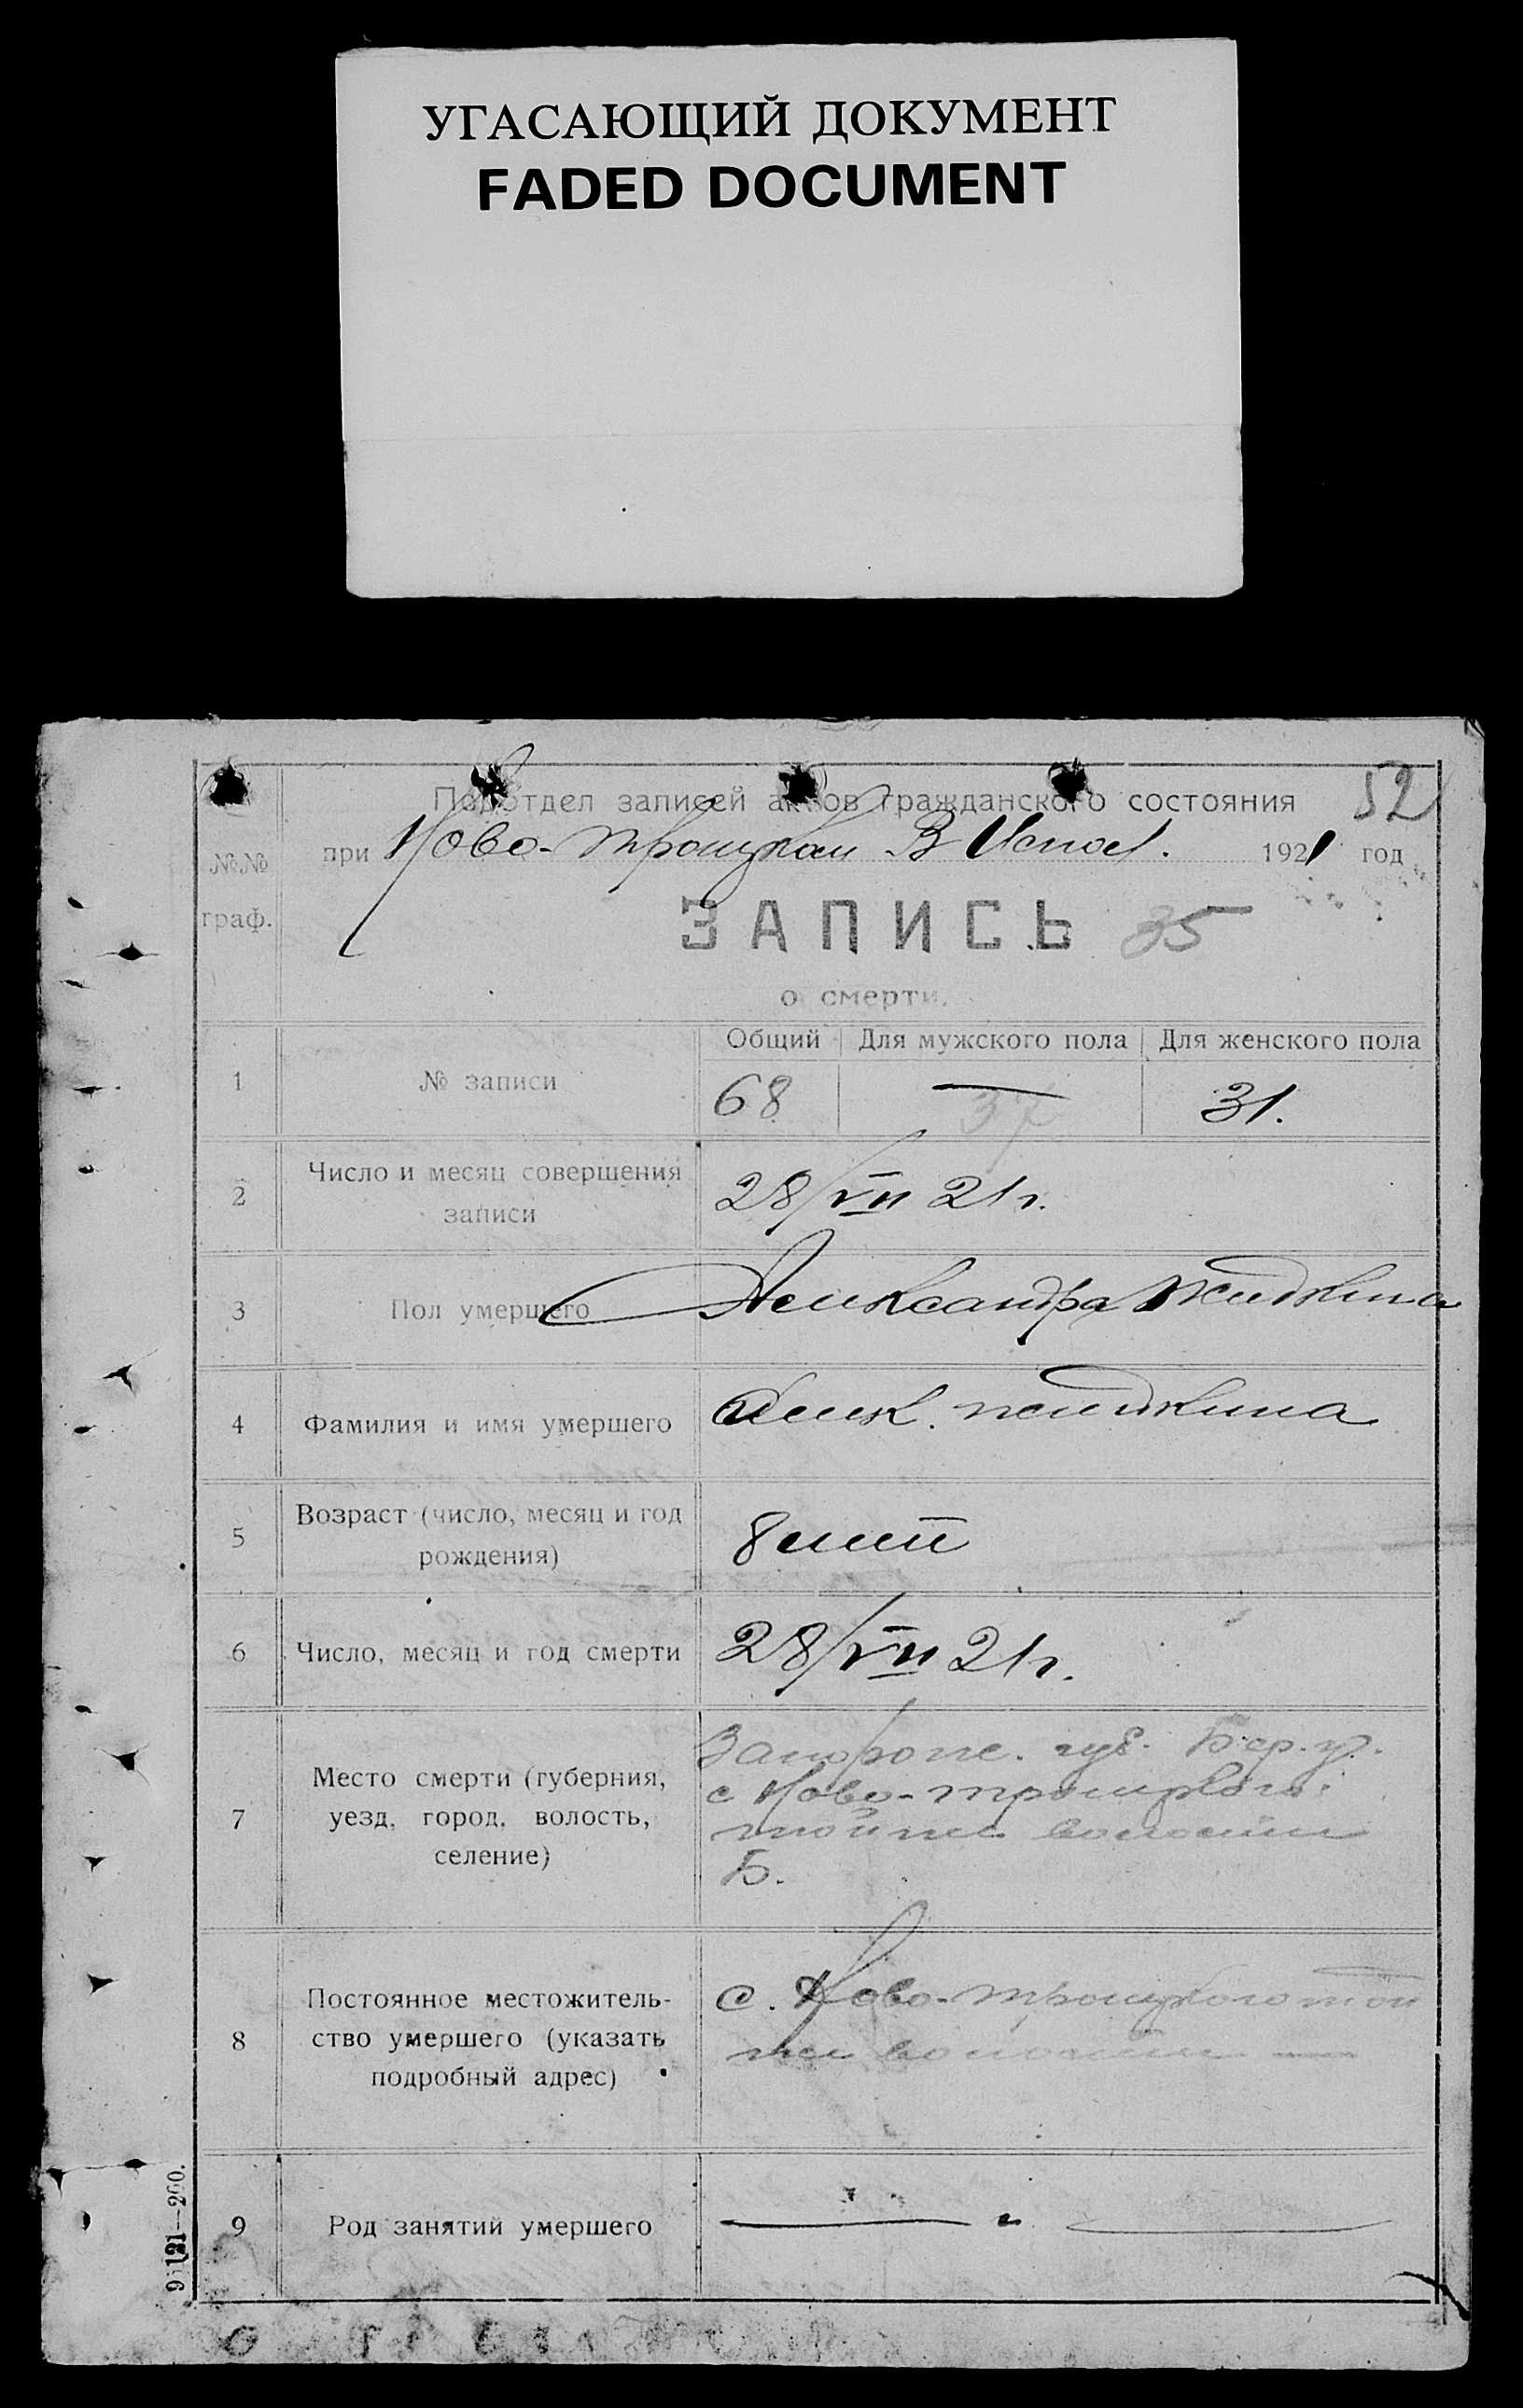 УГАСАЮЩИЙ ДОКУМЕНТ
FADED DOCUMENT
52
Подотдел записей актов гражданского состояния
при Ново-Троицком В Испол. 1921 год
№№ граф.
ЗАПИСЬ 35
о смерти.
Общий Для мужского пола Для женского пола
1 № записи 68 — 37 31.
2 Число и месяц совершения
записи 28/VII 21 г.
3 Пол умершего Александра Жидкина
4 Фамилия и имя умершего Алек. Жидкина
5 Возраст (число, месяц и год
рождения) 8 лет
6 Число, месяц и год смерти 28/VII 21 г.
7 Место смерти (губерния,
уезд, город, волость,
селение)
Запорож. губ. Бер. у.
с Ново-Троицкого
той же волости
Б.
8 Постоянное местожитель-
ство умершего (указать
подробный адрес)
с. Ново-Троицкого той
же волости —
9 Род занятий умершего — " —